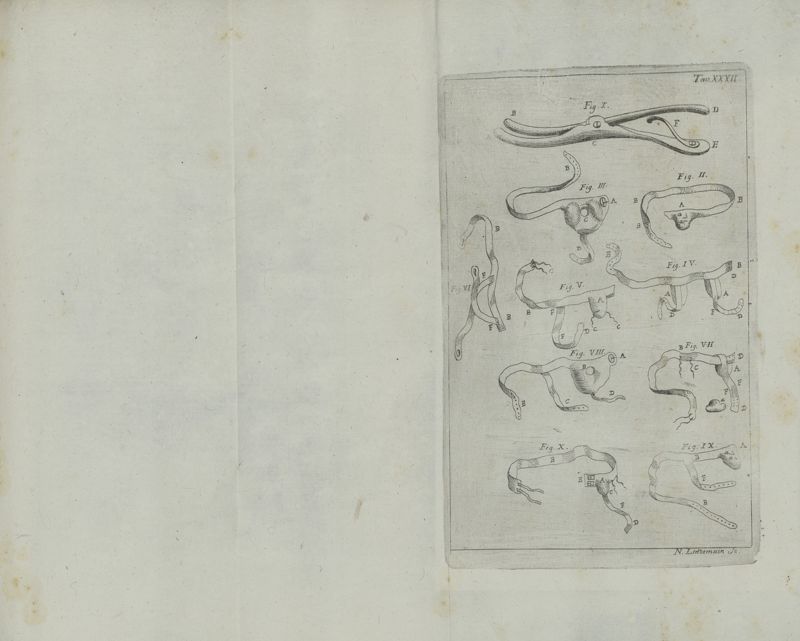 Tav. XXXII
Fig. I.
B
D
F
C
E
B
Fig. III.
A
C
D
Fig. II.
B
A
B
B
B
Fig. VI
F
E
F
Fig. V.
C
B
A
F
F
D
C
C
E
Fig. IV.
B
D
A
D
A
F
D
Fig. VIII
A
B
E
C
D
B
Fig. VII
D
A
C
F
F
D
Fig. X.
B
E
A
C
F
D
Fig. IX.
B
A
F
B